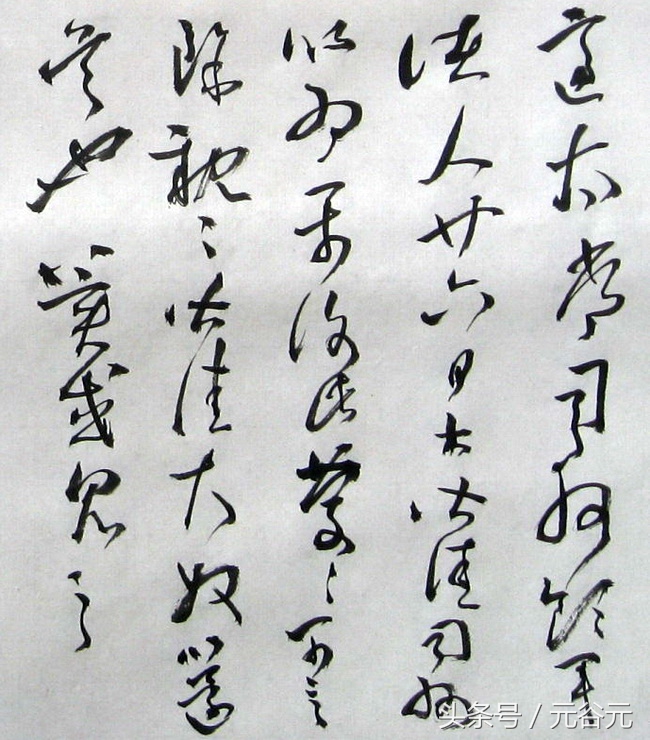 適太常司州領軍
諸人廿六日書皆佳司州
以為平復此慶慶可言
餘親親皆佳大奴以還
吳也冀或見之
头条号 / 元谷元